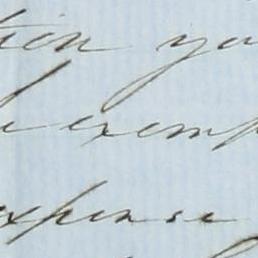 tion you
exemp
expense